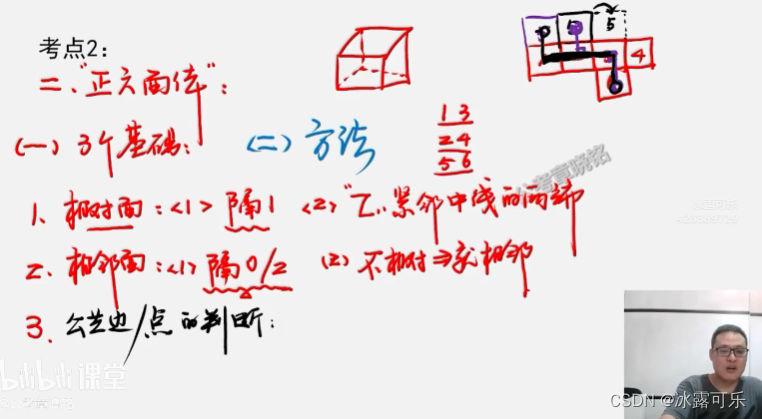 考点2：
5 5
4
二、"正六面体"：
(一) 3个基础： (二) 方法
1 3
2 4
5 6
1、相对面：<1> 隔1 <2> "Z"紧邻中线的两端
2、相邻面：<1> 隔0/2 (2) 不相对⇒就相邻
3、公共边/点的判断：
bilibili课堂
CSDN @冰露可乐